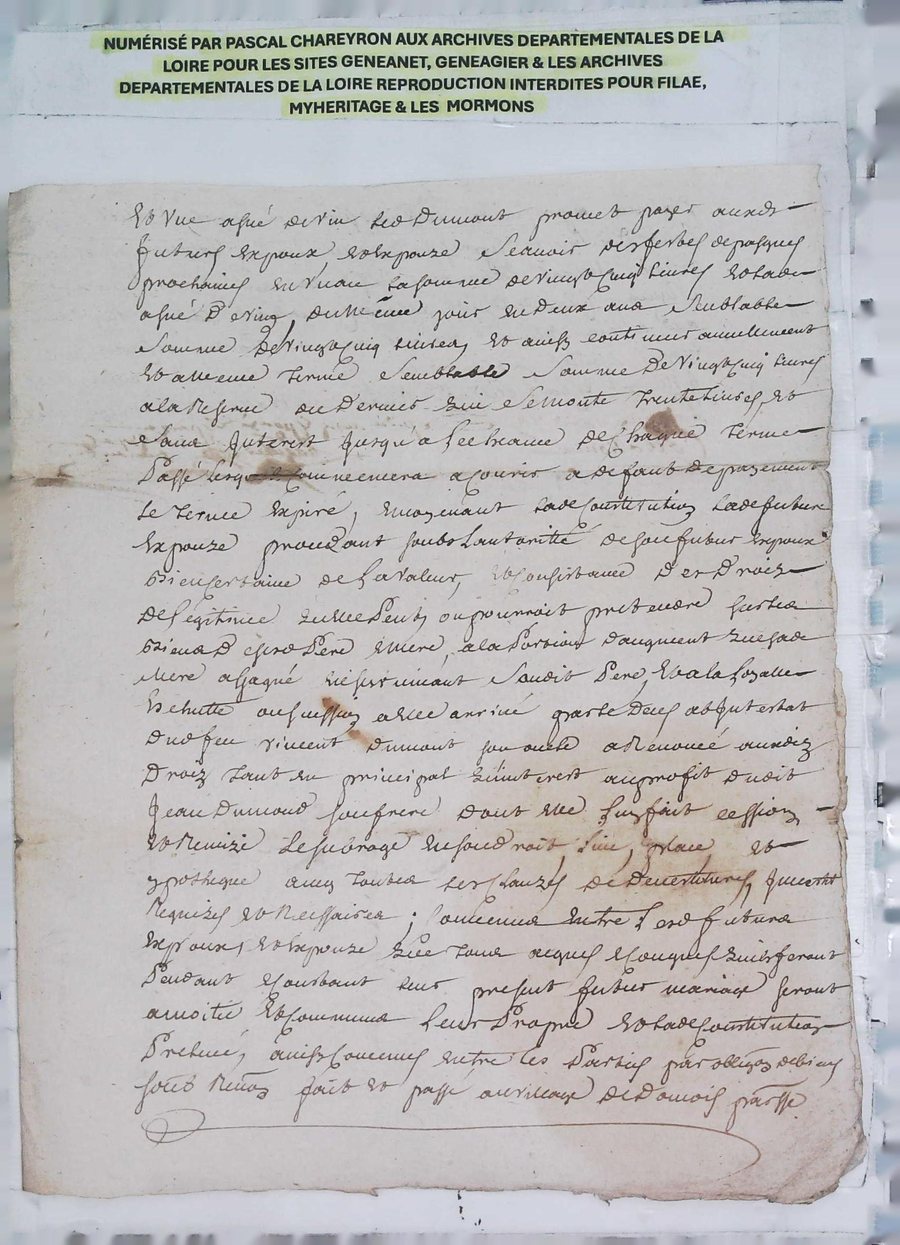 NUMÉRISÉ PAR PASCAL CHAREYRON AUX ARCHIVES DEPARTEMENTALES DE LA
LOIRE POUR LES SITES GENEANET, GENEAGIER & LES ARCHIVES
DEPARTEMENTALES DE LA LOIRE REPRODUCTION INTERDITES POUR FILAE,
MYHERITAGE & LES MORMONS
Et Une asné de vin led Dumont promet payer auxds
futurs Expoux et Expouze Scavoir des festes de pasques
prochaines en un an la somme de vingt cinq Livres et lad
asné De vin, du meme jour en deux ans Semblable
Somme De vingt cinq Livres, et ainsy continuer annuellement
et a meme Terme Semblable Somme De vingt cinq Livres
a la Reserve du Dernier qui Se monte trente Livres, et
Sans Interest jusqu'a l'echeance de Chaque Terme
Passé Lequel Commencera a courir a defaut de payement
Le Terme Expiré, moyenant lade Constitution lade future
Expouze procedant soubs l'autorité de son futur Expoux
Bien certaine de la valeur, et Consistance Des Droits
de Légitime qu'elle Peut, ou pourroit pretendre sur les
Biens D esd Père Mere, a la Portion d'augment que sade
Mere a gagné survivant Sondit Pere, et a la
Echutte ou sucession a elle arrivé par le Deces ab Intestat
Dud feu vincent Dumont son oncle a Renoncé auxdits
Droits tant en principal qu'interest au profit dudit
Jean Dumond son frere dont elle Luy fait cession
et Remize Le subroge en son droit, Lieu, place et
ypotheque avec toutes les Clauzes de
Requizes et Necessaires ; Convenus entre Lesd futurs
Expoux, et Expouze que tous acquets et conquets qu'ils feront
Pendant et Constant leur present futur mariage seront
a moitié et Communs Leurs Propre et lade Constitution
Prelevé, ainsy Convenu entre les Parties par oblion de biens
soub Renon fait et passé au village de Domois parsse